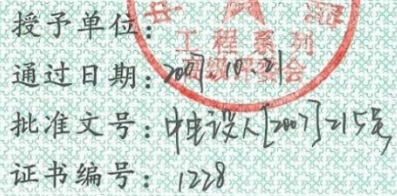 授予单位:
工程系列
高级评委会
通过日期: 2007.10.21
批准文号: 中电设人[2007]215号
证书编号: 1228